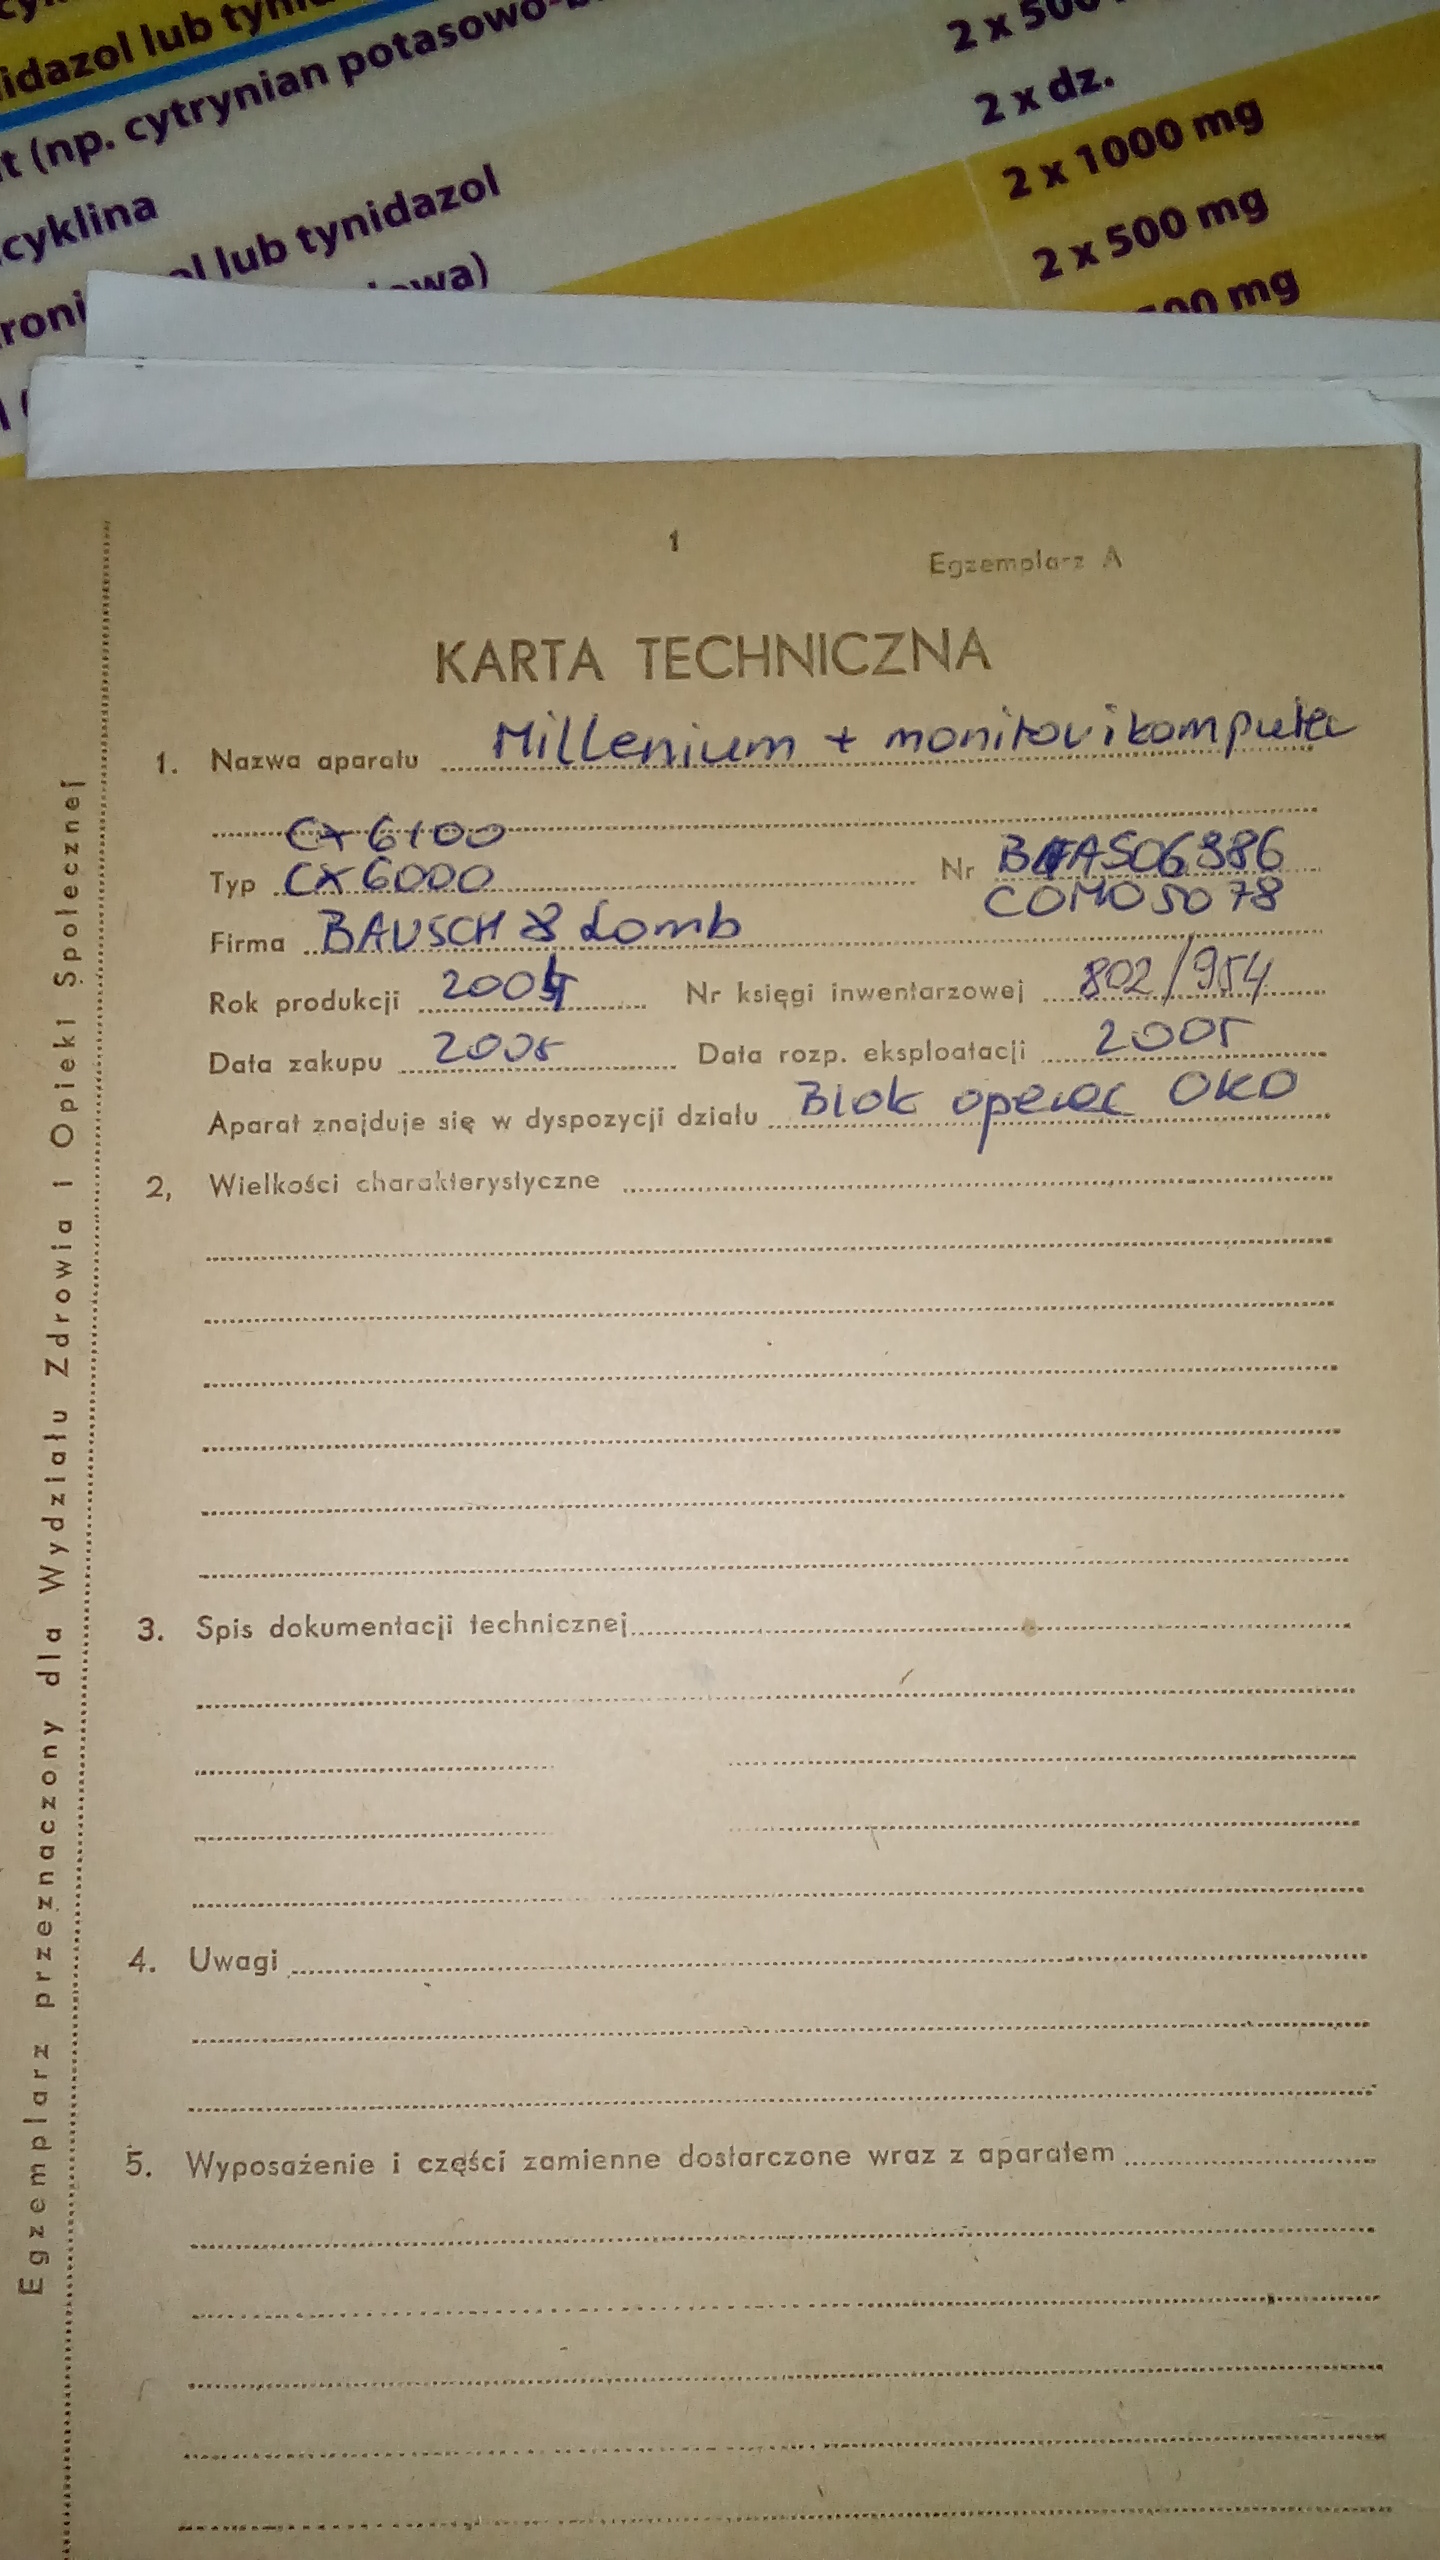 idazol lub
t (np. cytrynian potasowo-
cyklina
lub tynidazol
2 x 500
2 x dz.
2 x 1000 mg
2 x 500 mg
500 mg
1
Egzemplarz A
KARTA TECHNICZNA
1. Nazwa aparatu Millenium + monitor i komputer
CX 6100
Typ CX 6000 Nr BAAS06886
COMO5078
Firma BAUSCH & Lomb
Rok produkcji 2004 Nr księgi inwentarzowej 802/954
Data zakupu 2005 Data rozp. eksploatacji 2005
Aparat znajduje się w dyspozycji działu Blok operac OKO
2, Wielkości charakterystyczne
3. Spis dokumentacji technicznej
4. Uwagi
5. Wyposażenie i części zamienne dostarczone wraz z aparatem
Egzemplarz przeznaczony dla Wydziału Zdrowia i Opieki Społecznej